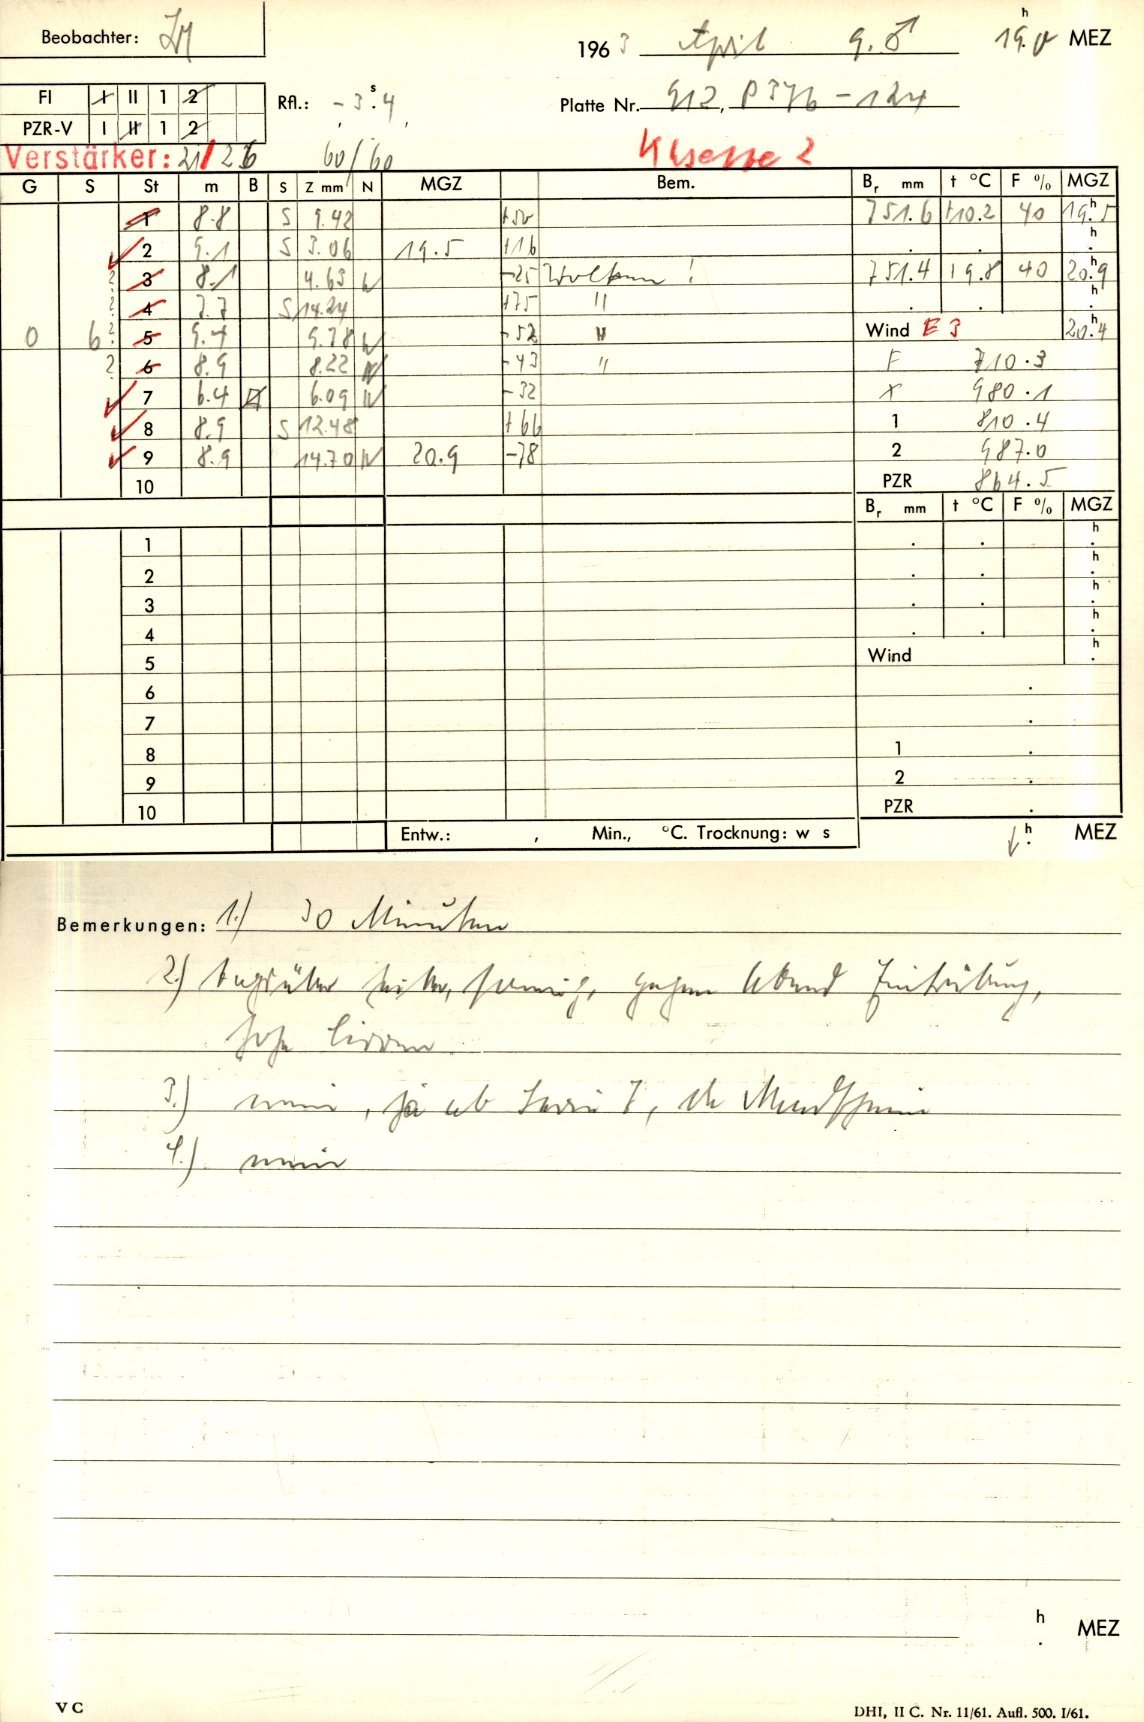 Beobachter:
1963 April 9. ♂ 19.0 h MEZ
FI I II 1 2
Rfl.: -3.4 s
Platte Nr. 912, P376-124
PZR-V I II 1 2
Verstärker: 21/26 60/60 Klasse 2
G S St m B S Z mm N MGZ Bem. Br mm t °C F % MGZ
1 8.8 S 9.42 +50 751.6 +10.2 40 19.5 h
2 9.1 S 3.06 19.5 +16 h
? 3 8.1 4.63 N -25 Wolken ! 751.4 +9.8 40 20.9 h
? 4 7.7 S 14.24 +75 " h
0 6 ? 5 9.4 9.78 N -52 " Wind E 3 20.4 h
? 6 8.9 8.22 N -43 " F 710.3
7 6.4 6.09 N -32 980.1
8 8.9 S 12.48 +66 1 810.4
9 8.9 14.70 N 20.9 -78 2 987.0
10 PZR 864.5
Br mm t °C F % MGZ
1 h
2 h
3 h
4 h
5 Wind h
6
7
8 1
9 2
10 PZR
Entw.: , Min., °C. Trocknung: w s
h MEZ
Bemerkungen: 1.) 30 Minuten
2.) tagsüber heiter, sonnig, gegen Abend Eintrübung,
hohe Cirren
3.) nein, ja ab Serie 7, Mondschein
4.) nein
h MEZ
V C DHI, II C. Nr. 11/61. Aufl. 500. I/61.